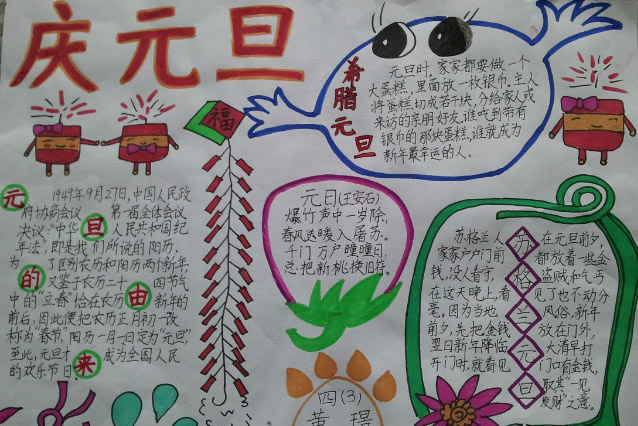 庆元旦
福
希腊元旦
元旦时,家家都要做一个
大蛋糕,里面放一枚银币,主人
将蛋糕切成若干块,分给家人或
来访的亲朋好友,谁吃到带有
银币的那块蛋糕,谁就成为
新年最幸运的人。
元旦的由来
1949年9月27日,中国人民政
府协商会议 第一届全体会议
决议:“中华 人民共和国纪
年法”,即是我们所说的阳历,
为了区别农历和阳历两个新年,
又鉴于农历二十 四节气
中的“立春”恰在农历 新年的
前后,因此便把农历正月初一改
称为“春节”阳历一月一日定为“元旦”,
至此,元旦才 成为全国人民
的欢乐节日。
元日(王安石)
爆竹声中一岁除,
春风送暖入屠苏。
千门万户曈曈日,
总把新桃换旧符。
苏格兰元旦
苏格兰人
家家户户门前
钱,没人看守,
在这天晚上,看
毫。因为当地
前夕,先把金钱
翌日新年降临
开门时,就看见
在元旦前夕,
都放着一些金
盗贼和乞丐
见了也不动分
风俗,新年
放在门外,
大清早打
门口有金钱,
取其“一见
发财”之意。
四(3)
黄璟